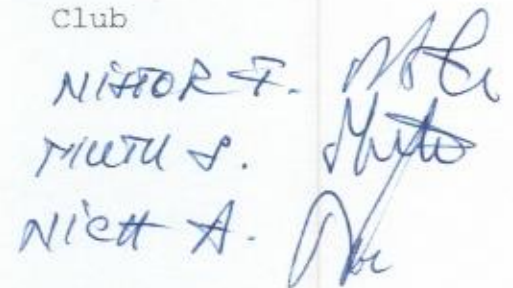 Club
NISTOR F.
MUTU S.
NICH A.